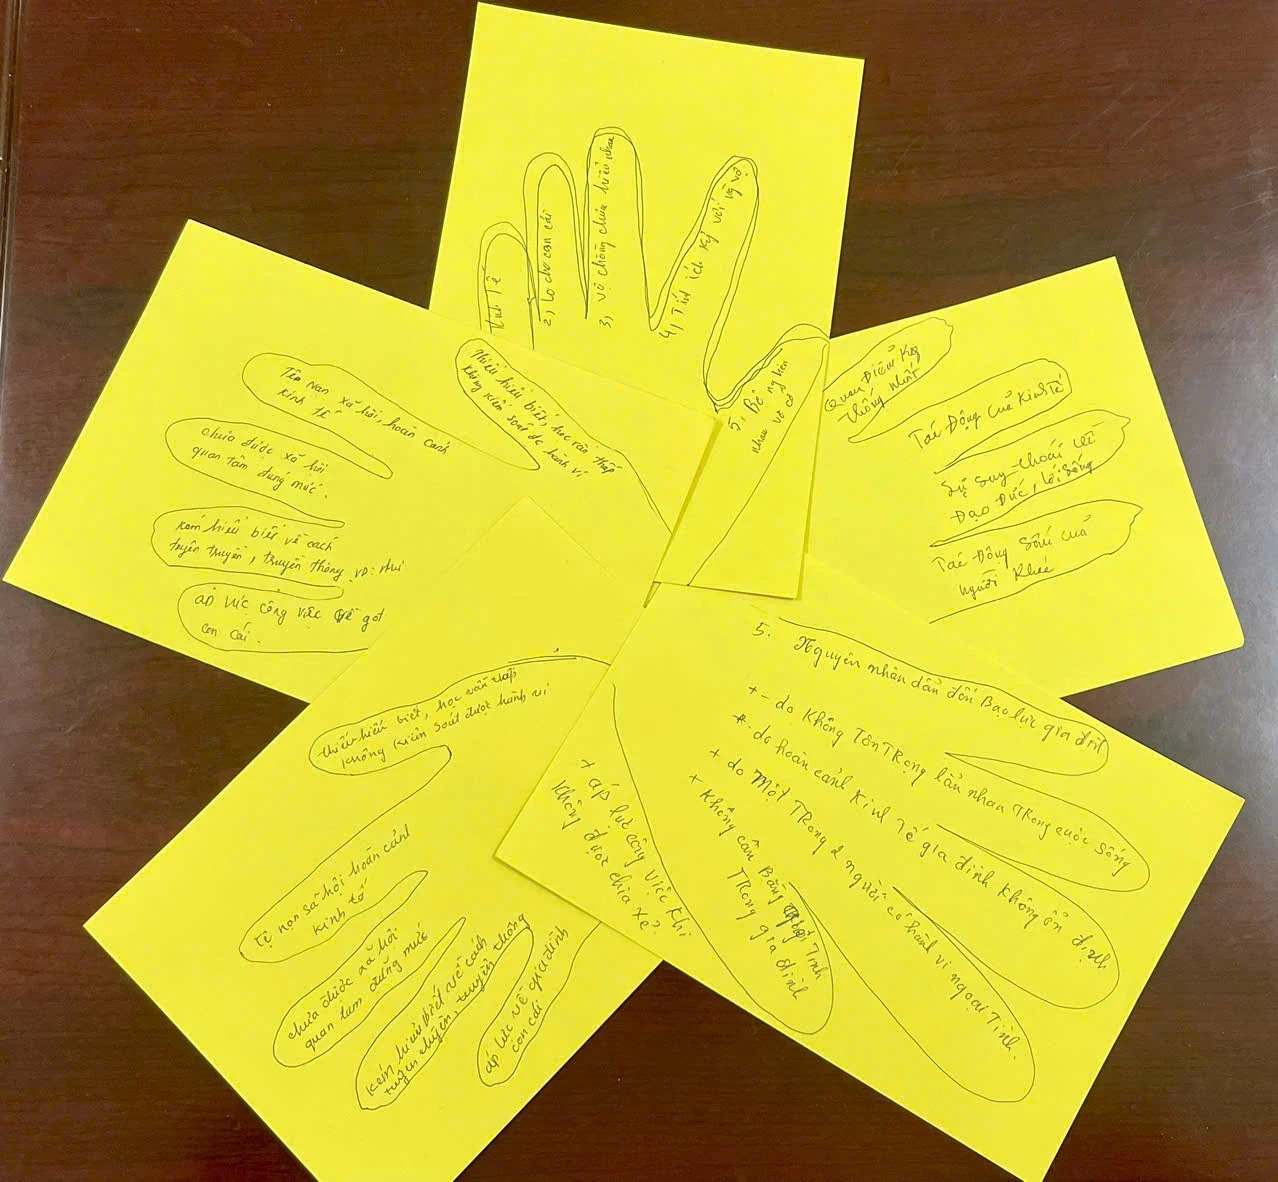 tinh tế
2, lo cho con cái
3, vợ chồng chưa hiểu nhau
4, Tính ích kỷ với vợ
5, Bỏ
nhau vô cớ
Quan Điểm Kg
thống nhất
Tác Động Của Kinh Tế
Sự suy thoái về
Đạo Đức, lối sống
Tác Động Sấu của
người khác
Thiếu hiểu biết, học vấn thấp
không kiểm soát đc hành vi
Tện nạn xã hội, hoàn cảnh
kinh tế
chưa được xã hội
quan tâm đúng mức.
kém hiểu biết về cách
tuyên truyền, truyền thông
áp lực công việc
con cái.
thiếu hiểu biết, học vấn thấp
không kiểm soát được hành vi
tệ nạn sã hội hoàn cảnh
kinh tế
chưa được xã hội
quan tâm đúng mức
kém hiểu biết về cách
tuyên truyền, truyền thông
áp lực về gia đình
con cái
5. Nguyên nhân dẫn đến Bạo lực gia đình
+ - do Không Tôn Trọng lẫn nhau Trong cuộc sống
+ do hoàn cảnh Kinh Tế gia đình không ổn định
+ do Một Trong 2 người có hành vi ngoại Tình.
+ Không cân Bằng Tình
Trong gia đình
+ áp lực công việc khi
không được chia xẻ.